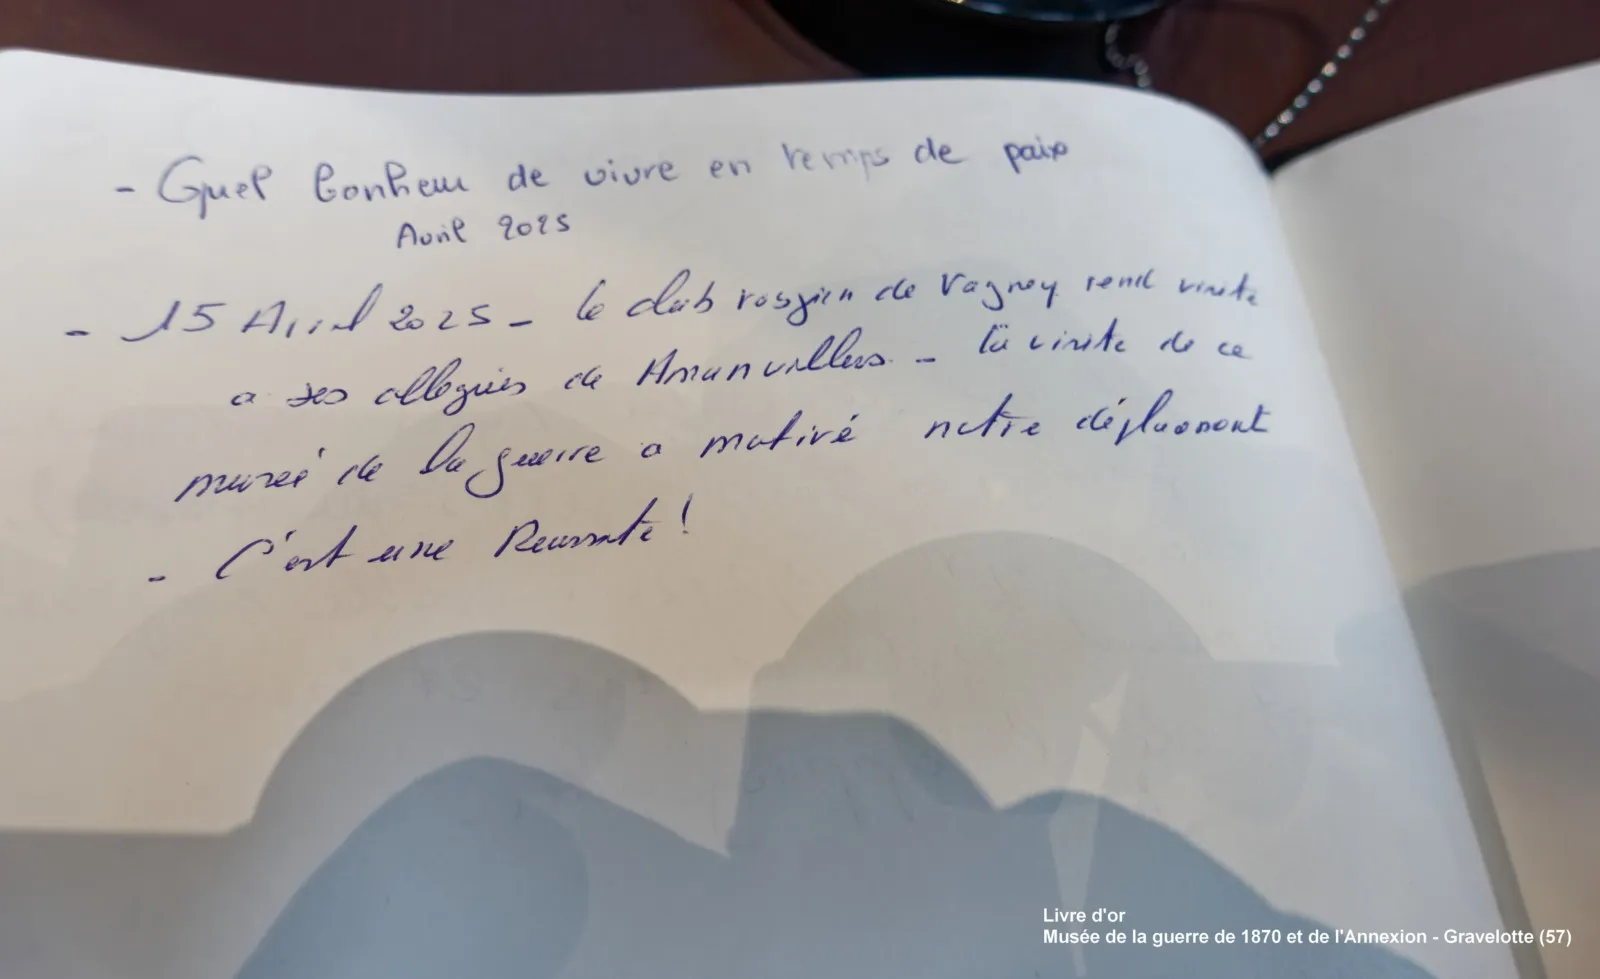 - Quel bonheur de vivre en temps de paix
Avril 2025
- 15 Avril 2025 - le club vosgien de Vagney rend visite
a ses collegues de Amanvillers - la visite de ce
musée de la guerre a motivé notre déplacement
- C'est une Reussite !
Livre d'or
Musée de la guerre de 1870 et de l'Annexion - Gravelotte (57)